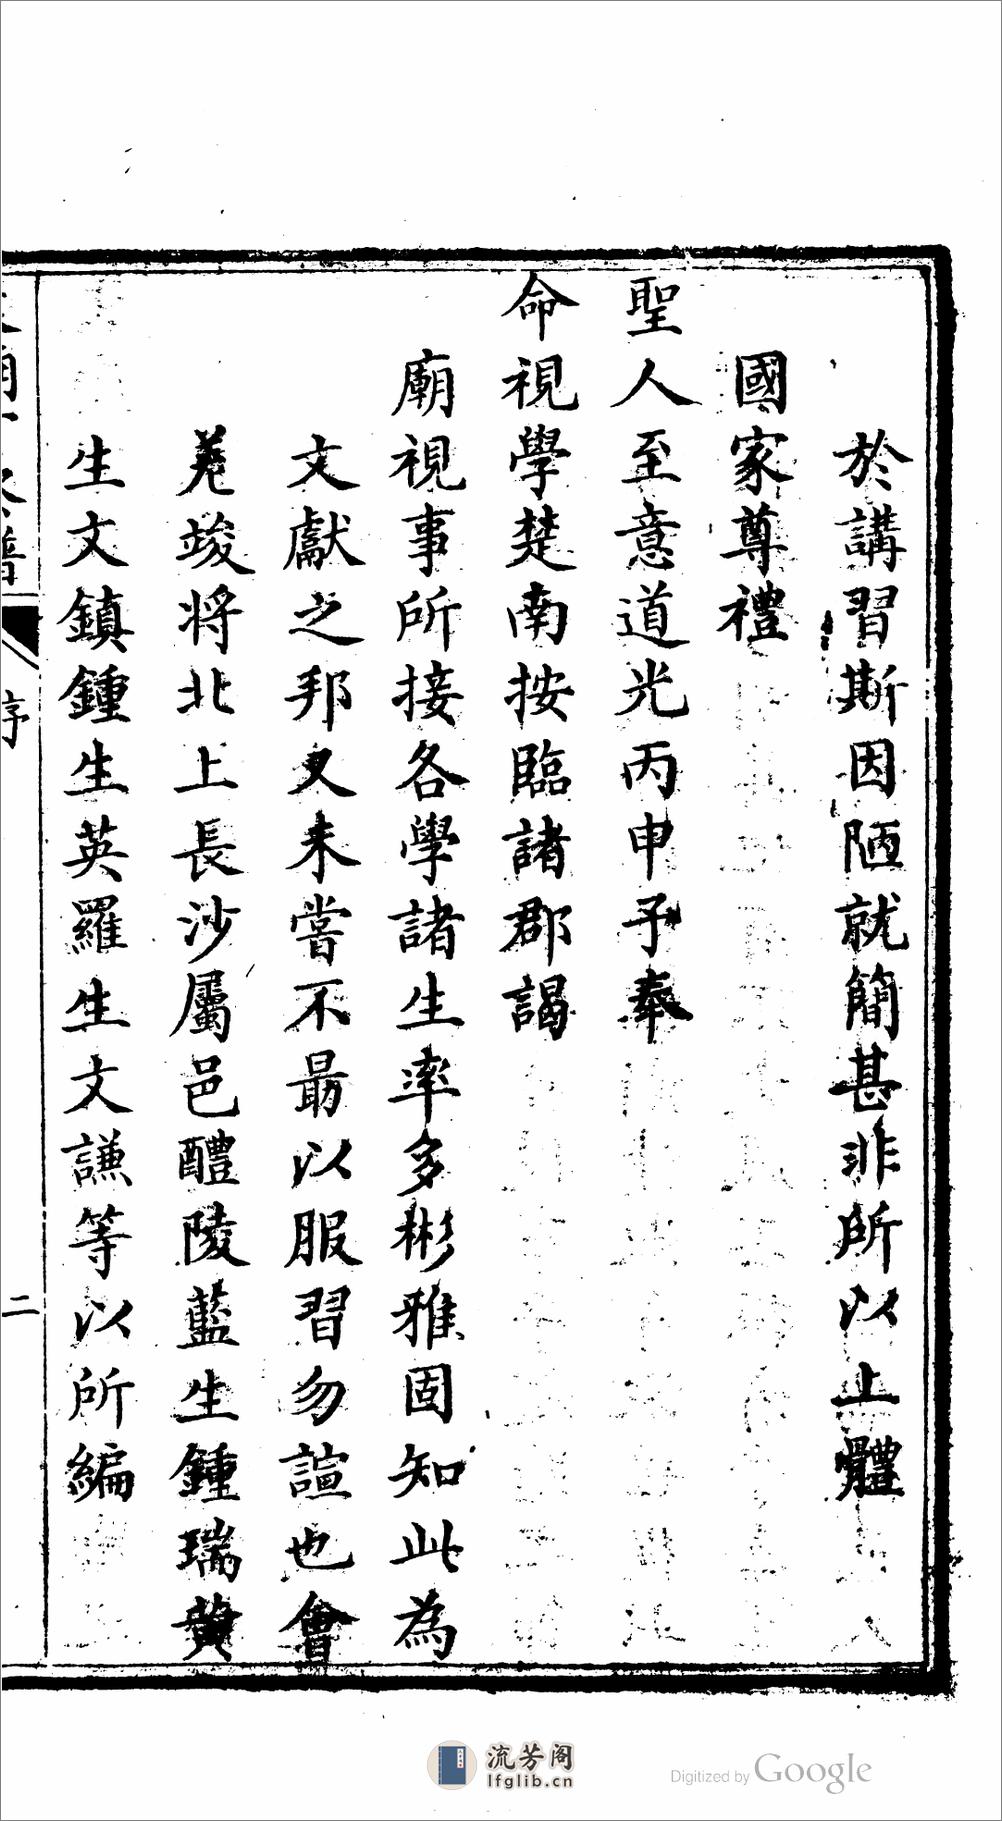 於講習斯因陋就簡甚非所以上體
國家尊禮
聖人至意道光丙申予奉
命視學楚南按臨諸郡謁
廟視事所接各學諸生率多彬雅固知此為
文獻之邦又未嘗不勗以服習勿諠也會
竣將北上長沙屬邑醴陵藍生鍾瑞黃
生文鎮鍾生英羅生文謙等以所編
序
二
流芳阁
lfglib.cn
Digitized by Google